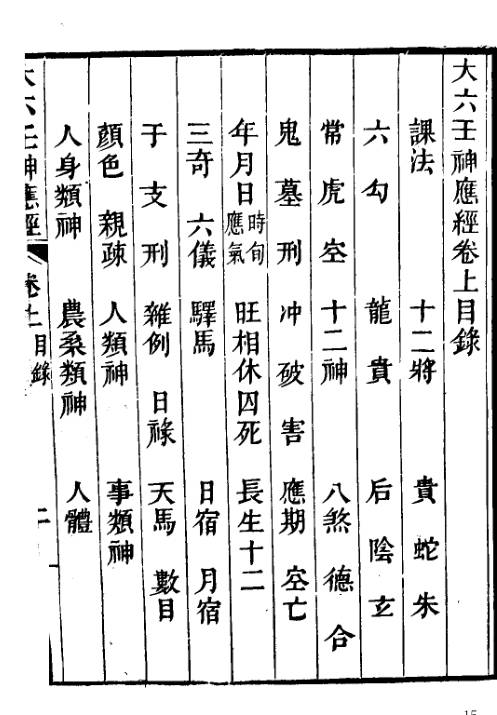 大六壬神應經卷上目錄
課法 十二將 貴 蛇 朱
六 勾 龍 貴 后 陰 玄
常 虎 空 十二神 八煞 德 合
鬼 墓 刑 冲 破 害 應期 空亡
年月日時旬應氣 旺相休囚死 長生十二
三奇 六儀 驛馬 日宿 月宿
于 支 刑 雜例 日祿 天馬 數目
顏色 親疎 人類神 事類神
人身類神 農桑類神 人體
大六壬神應經 卷上 目錄 二
15